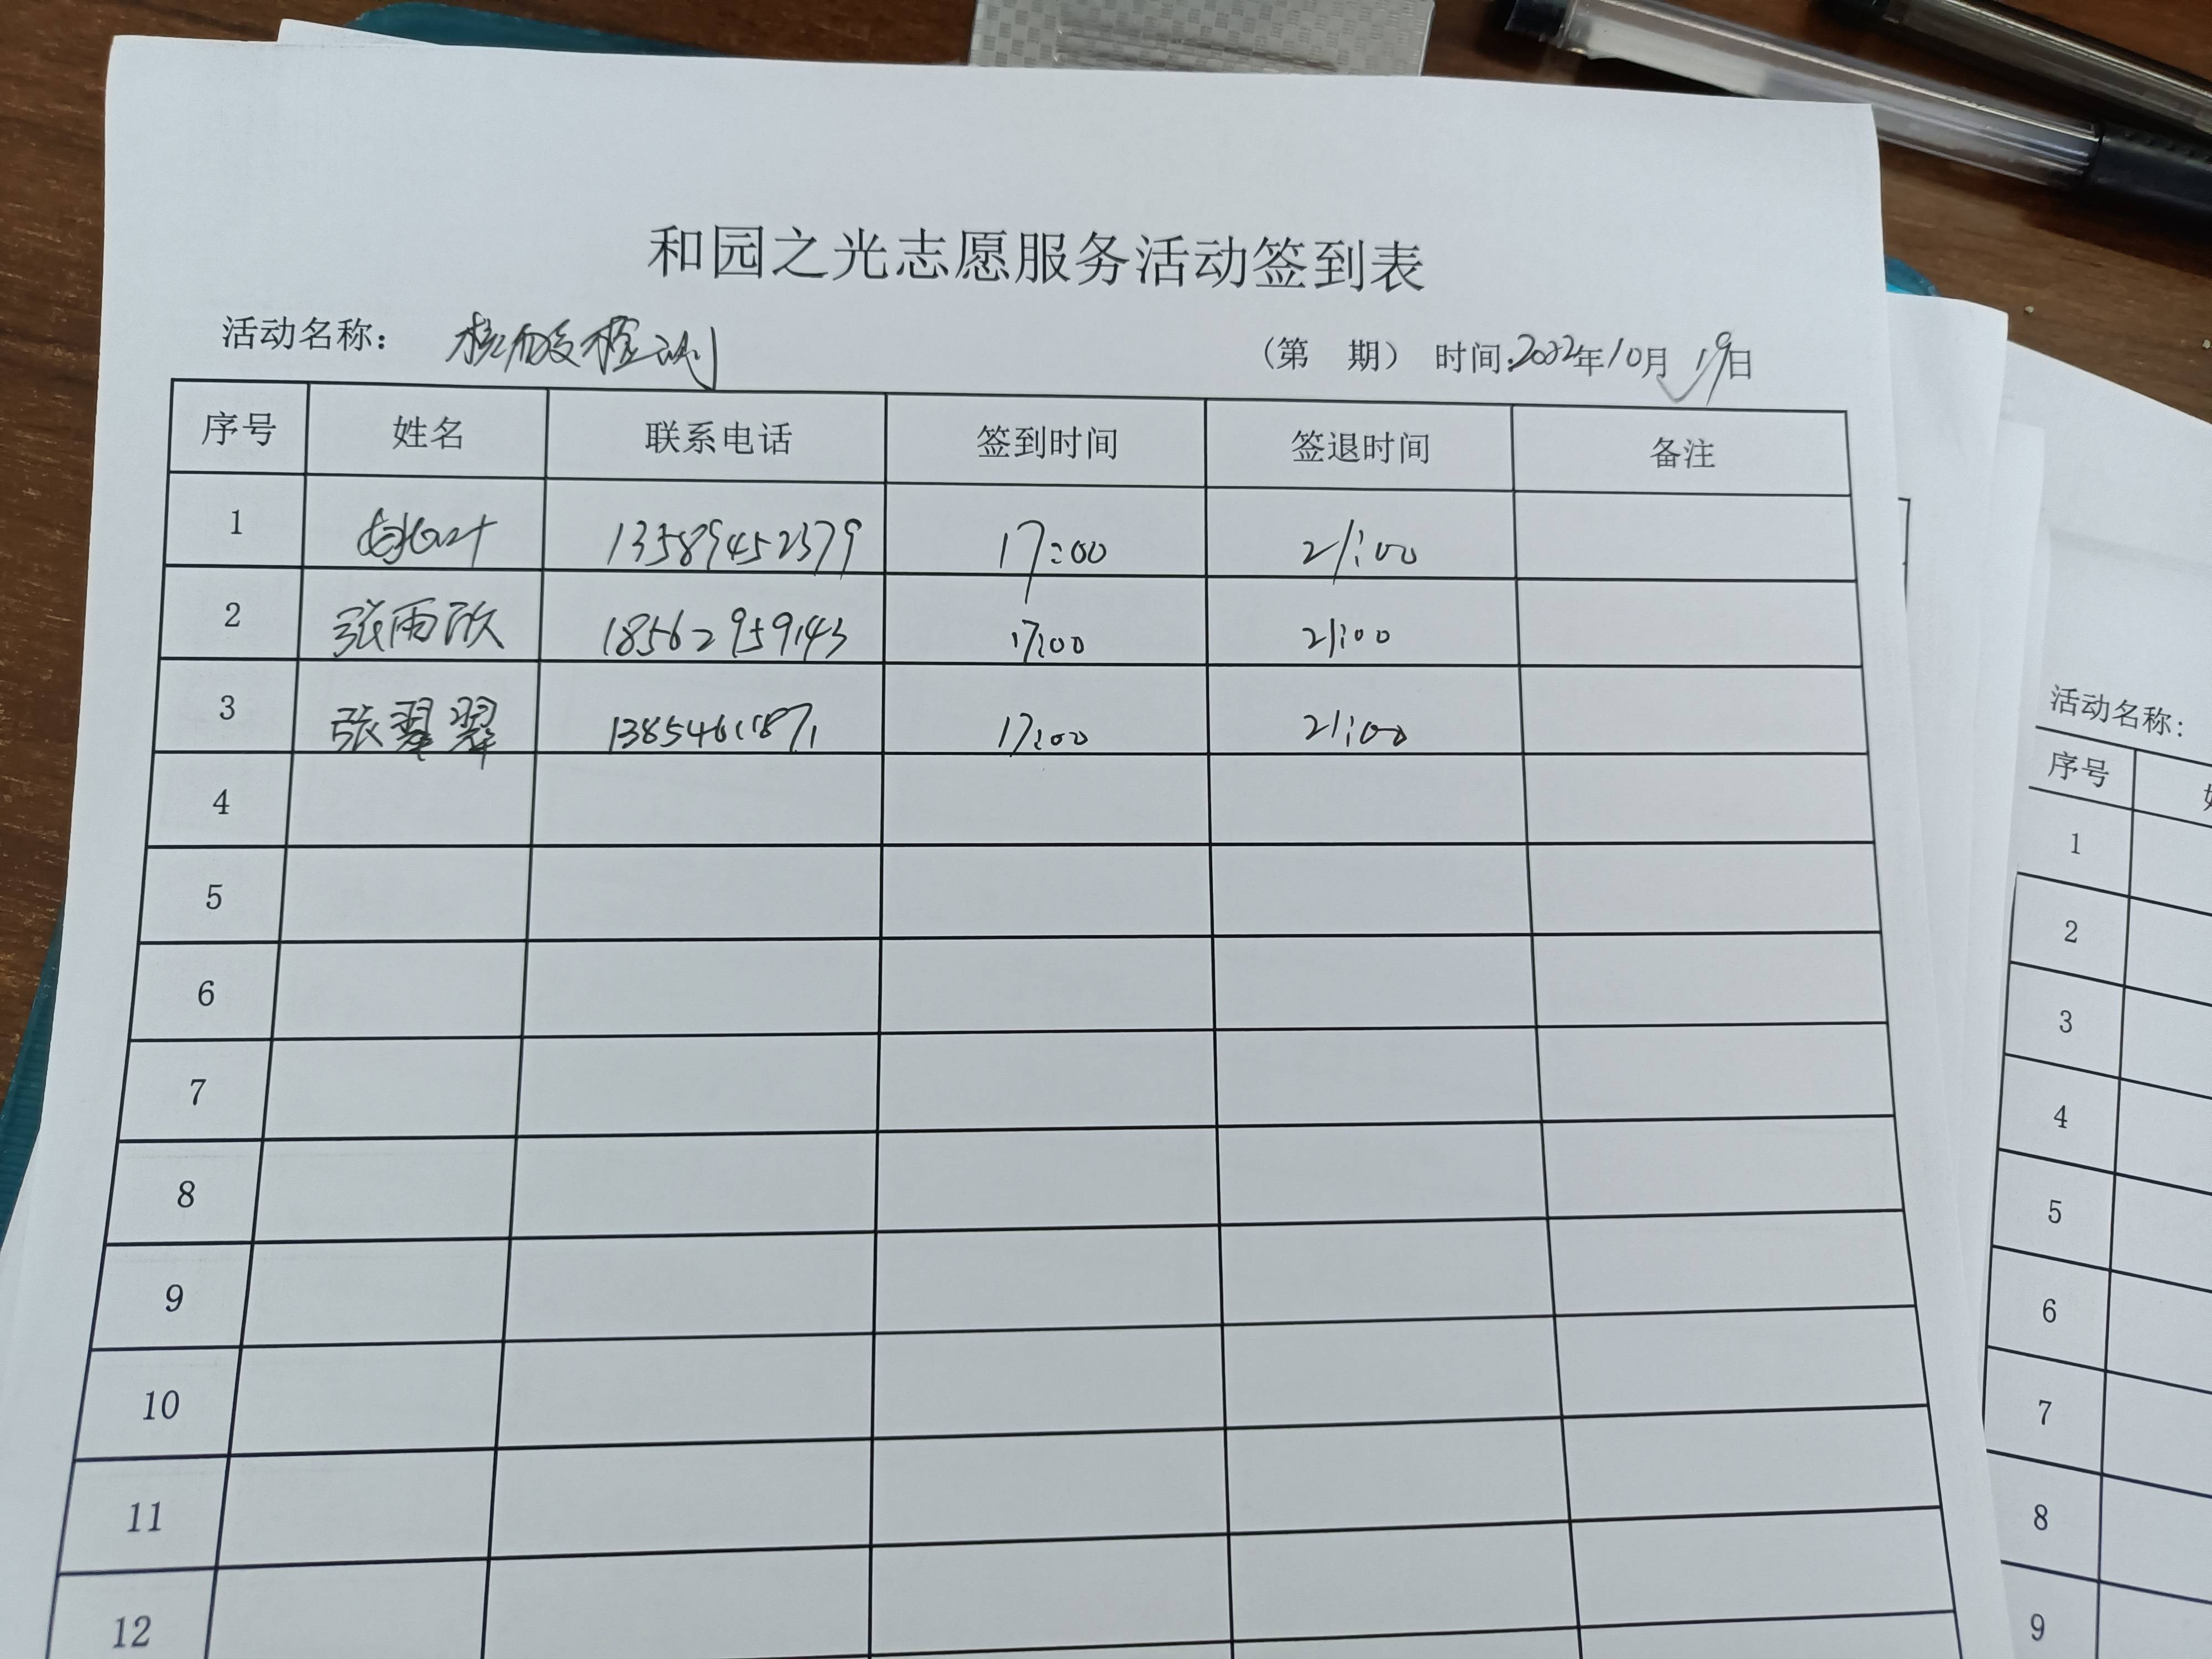 和园之光志愿服务活动签到表
活动名称: 核酸检测 (第 期) 时间:2022年10月19日
序号 姓名 联系电话 签到时间 签退时间 备注
1 13589452379 17:00 21:00
2 张雨欣 18562959143 17:00 21:00
3 张翠翠 17:00 21:00
4
5
6
7
8
9
10
11
12
活动名称:
序号
1
2
3
4
5
6
7
8
9